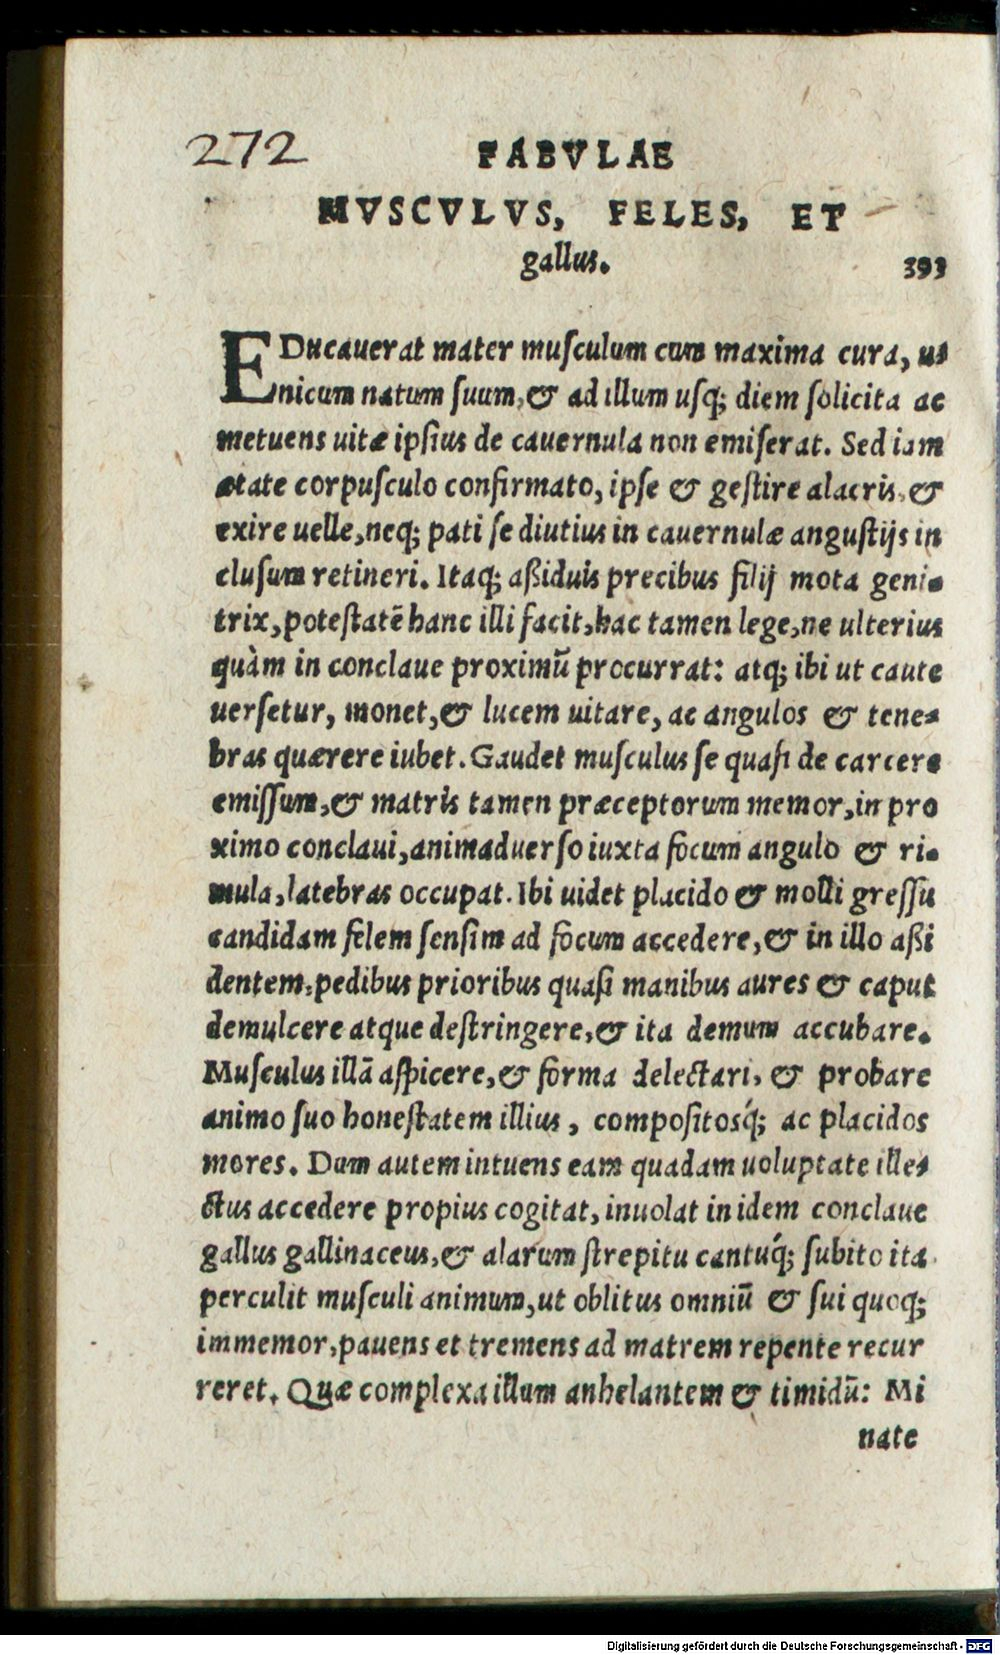 272
FABVLAE
MVSCVLVS, FELES, ET
gallus.
393
EDucauerat mater musculum cum maxima cura, u-
nicum natum suum, & ad illum usq; diem solicita ac
metuens uitæ ipsius de cauernula non emiserat. Sed iam
ætate corpusculo confirmato, ipse & gestire alacris, &
exire uelle, neq; pati se diutius in cauernulæ angustijs in
clusum retineri. Itaq; aßiduis precibus filij mota geni-
trix, potestatē hanc illi facit, hac tamen lege, ne ulterius
quàm in conclaue proximū procurrat: atq; ibi ut caute
uersetur, monet, & lucem uitare, ac angulos & tene-
bras quærere iubet. Gaudet musculus se quasi de carcere
emissum, & matris tamen præceptorum memor, in pro
ximo conclaui, animaduerso iuxta focum angulo & ri-
mula, latebras occupat. Ibi uidet placido & molli gressu
candidam felem sensim ad focum accedere, & in illo aßi
dentem, pedibus prioribus quasi manibus aures & caput
demulcere atque destringere, & ita demum accubare.
Musculus illā aspicere, & forma delectari, & probare
animo suo honestatem illius, compositosq́; ac placidos
mores. Dum autem intuens eam quadam uoluptate ille-
ctus accedere propius cogitat, inuolat in idem conclaue
gallus gallinaceus, & alarum strepitu cantuq́; subito ita
perculit musculi animum, ut oblitus omniū & sui quoq;
immemor, pauens et tremens ad matrem repente recur
reret. Quæ complexa illum anhelantem & timidū: Mi
nate
Digitalisierung gefördert durch die Deutsche Forschungsgemeinschaft - DFG